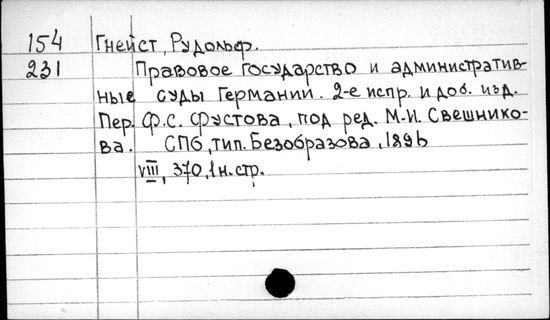 154 Гнейст, Рудольф.
231 Правовое государство и административ-
ные суды Германии. 2-е испр. и доб. изд.
Пер. Ф.С. Фустова, под ред. М.И. Свешнико-
ва. СПб, тип. Безобразова, 1896
VIII, 370, 1 н. стр.